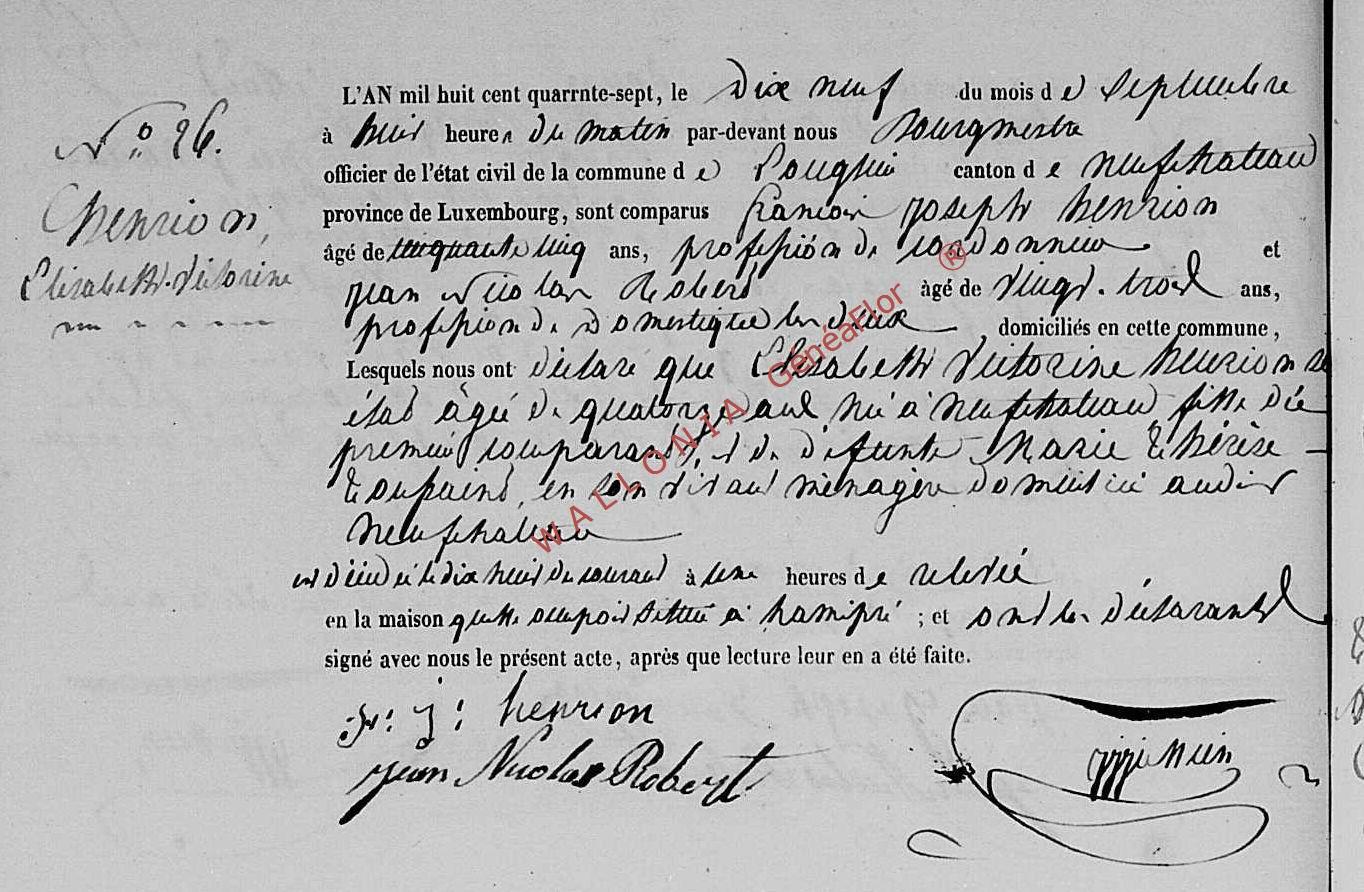 L'AN mil huit cent quarrnte-sept, le Dix neuf du mois d e Septembre
N° 26.
à huit heures du matin par-devant nous Bourgmestre
officier de l'état civil de la commune d e Longlier canton d e neufchateau
Henrion,
province de Luxembourg, sont comparus françois joseph henrion
Elisabeth-Victorine
âgé de cinquante cinq ans, profession de cordonnier et
jean Nicolas Robert âgé de vingt-trois ans,
profession de Domestique les deux domiciliés en cette commune,
Lesquels nous ont déclaré que Elisabeth Victorine henrion
était âgée de quatorze ans née à neufchateau fille du
premier comparant, et de défunte Marie Thérèse
en son vivant ménagère domiciliée audit
neufchateau
est décédée le dix huit du courant à heures d e relevée
en la maison qu'elle occupoit située à hamipré ; et ont les déclarants
signé avec nous le présent acte, après que lecture leur en a été faite.
fr: j: henrion
jean Nicolas Robert
WALLONIA GénéaFlor ®